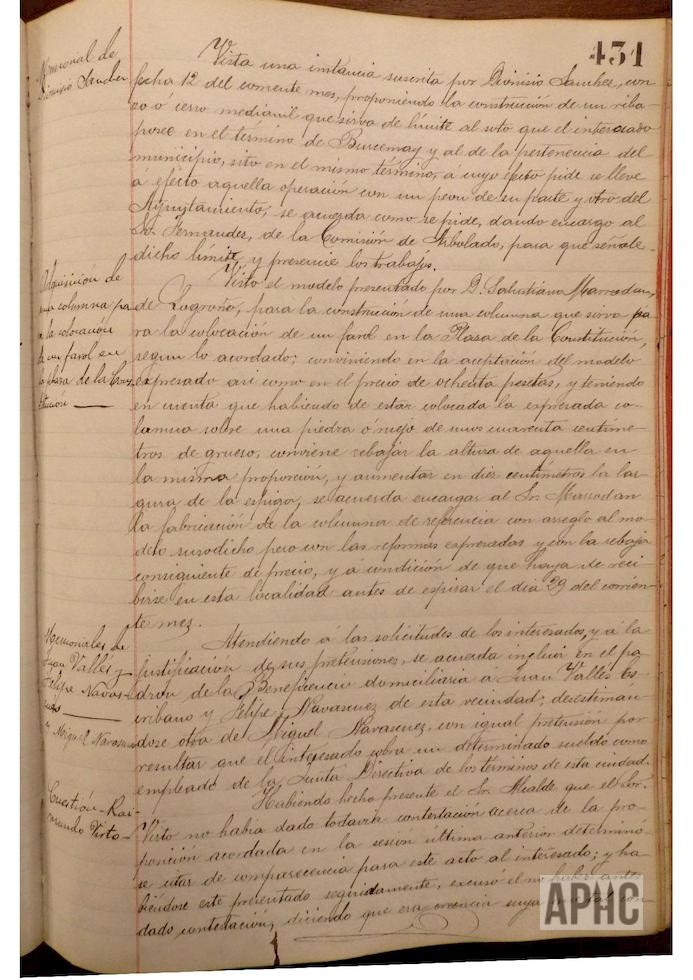 431
Memorial de
Dionisio Sanchez
Vista una instancia suscrita por Dionisio Sanchez, con
fecha 12 del corriente mes, proponiendo la construcción de un riba-
zo ó cerro medianil que sirva de límite al soto que el interesado
posee en el termino de Burcemay y al de la pertenencia del
municipio, sito en el mismo término, a cuyo efecto pide se lleve
á efecto aquella operación con un peon de su parte y otro del
Ayuntamiento; se acuerda como se pide, dando encargo al
Sr. Fernandez, de la Comisión de Arbolado, para que señale
dicho límite y presencie los trabajos.
Adquisicion de
una columna pa
ra la colocacion
de un farol en
la plaza de la Cons
titución
Visto el modelo presentado por D. Salustiano Marrodan,
de Logroño, para la construcción de una columna que sirva pa
ra la colocación de un farol en la Plaza de la Constitución,
segun lo acordado; conviniendo en la aceptación del modelo
expresado asi como en el precio de ochenta pesetas, y teniendo
en cuenta que habiendo de estar colocada la espresada co-
lumna sobre una piedra ó ruejo de unos cuarenta centíme-
tros de grueso, conviene rebajar la altura de aquella en
la misma proporción, y aumentar en diez centímetros la lar-
gura de la espiga, se acuerda encargar al Sr. Marrodan
la fabricación de la columna de referencia con arreglo al mo-
delo susodicho pero con las reformas espresadas y con la rebaja
consiguiente de precio, y á condición de que haya de reci-
birse en esta localidad antes de espirar el dia 29 del corrien-
te mes.
Memoriales de
Juan Valles y
Felipe Navas-
cues
y Miguel Navascues
Atendiendo á las solicitudes de los interesados, y á la
justificacion de sus pretensiones, se acuerda incluir en el pa
dron de la Beneficencia domiciliaria á Juan Valles Es-
cribano y Felipe Navascuez de esta vecindad; desestiman-
dose otra de Miguel Navascuez, con igual pretensión por
resultar que el interesado cobra un determinado sueldo como
empleado de la Junta Directiva de los términos de esta ciudad.
Cuestión-Rai-
mundo Virto-
Habiendo hecho presente el Sr. Alcalde que el Sor.
Virto no habia dado todavia contestación acerca de la pro-
posición acordada en la sesión última anterior determinó-
se citar de comparecencia para este acto al interesado; y ha-
biéndose este presentado seguidamente, escusó el no haber antes
dado contestación, diciendo que era creencia suya
APHC